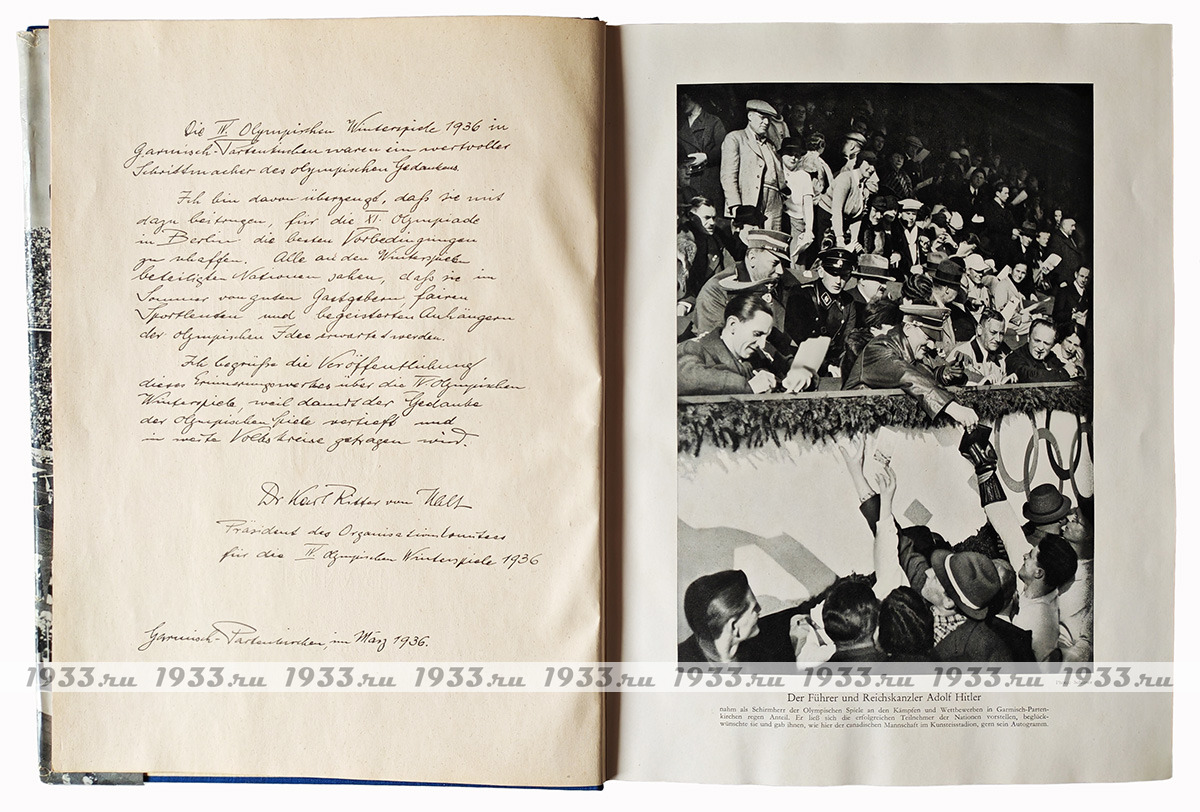 Die IV. Olympischen Winterspiele 1936 in
Garmisch-Partenkirchen waren ein wertvoller
Schrittmacher des olympischen Gedankens.
Ich bin davon überzeugt, daß sie mit
dazu beitrugen, für die XI. Olympiade
in Berlin die besten Vorbedingungen
zu schaffen. Alle an den Winterspielen
beteiligten Nationen sahen, daß sie im
Sommer von guten Gastgebern, fairen
Sportleuten und begeisterten Anhängern
der olympischen Idee erwartet werden.
Ich begrüße die Veröffentlichung
dieses Erinnerungswerkes über die IV. Olympischen
Winterspiele, weil damit der Gedanke
der Olympischen Spiele vertieft und
in weite Volkskreise getragen wird.
Dr Karl Ritter von Halt
Präsident des Organisationskomitees
für die IV. Olympischen Winterspiele 1936
Garmisch-Partenkirchen, im März 1936.
Der Führer und Reichskanzler Adolf Hitler
nahm als Schirmherr der Olympischen Spiele an den Kämpfen und Wettbewerben in Garmisch-Parten-
kirchen regen Anteil. Er ließ sich die erfolgreichen Teilnehmer der Nationen vorstellen, beglück-
wünschte sie und gab ihnen, wie hier der canadischen Mannschaft im Kunsteisstadion, gern sein Autogramm.
1933.ru 1933.ru 1933.ru 1933.ru 1933.ru 1933.ru 1933.ru 1933.ru 1933.ru
1933.ru